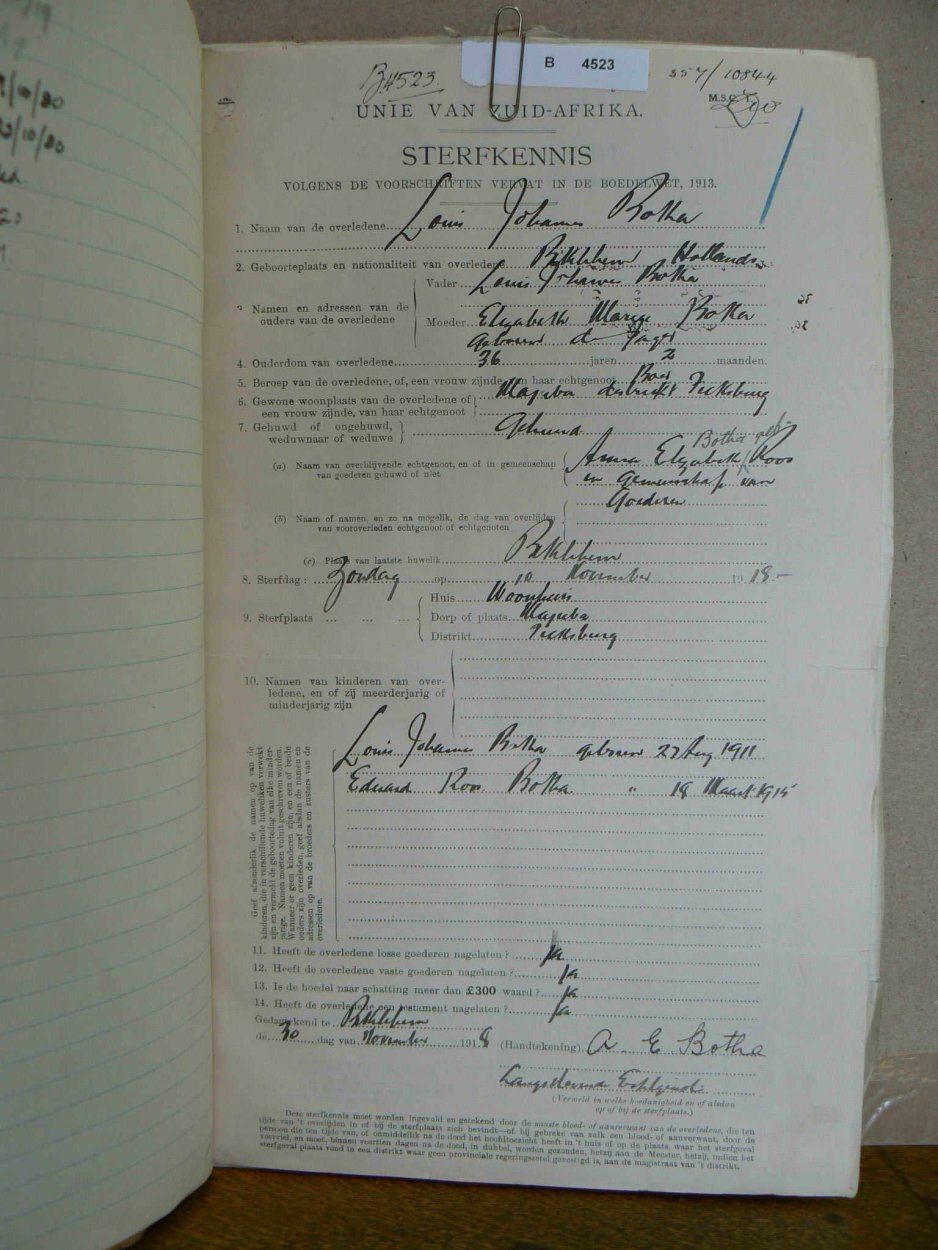 B 4523
B4523.
357/10844
M.S.C.
UNIE VAN ZUID-AFRIKA.
STERFKENNIS
VOLGENS DE VOORSCHRIFTEN VERVAT IN DE BOEDELWET, 1913.
1. Naam van de overledene Louis Johannes Botha
2. Geboorteplaats en nationaliteit van overledene Bethlehem Hollands
3 Namen en adressen van de ouders van de overledene
Vader Louis Johannes Botha
Moeder Elizabeth Maria Botha
Geboren de Jager
4. Ouderdom van overledene 36 jaren 2 maanden.
5. Beroep van de overledene, of, een vrouw zijnde, van haar echtgenoot Boer
6. Gewone woonplaats van de overledene of een vrouw zijnde, van haar echtgenoot Majuba distrikt Ficksburg
7. Gehuwd of ongehuwd, weduwnaar of weduwe Gehuwd
Botha geb.
(a) Naam van overblijvende echtgenoot, en of in gemeenschap van goederen gehuwd of niet Anna Elizabeth Roos
en gemeenschap van
Goederen
(b) Naam of namen, en zo na mogelik, de dag van overlijden van vooroverleden echtgenoot of echtgenoten
(c) Plaats van laatste huwelik Bethlehem
8. Sterfdag : Zondag op 10 November 1918.-
9. Sterfplaats ... ... ...
Huis Woonhuis
Dorp of plaats Majuba
Distrikt Ficksburg
10. Namen van kinderen van overledene, en of zij meerderjarig of minderjarig zijn
Louis Johannes Botha geboren 27 Aug 1911
Eduard Roos Botha " 19 Maart 1915
Geef afzonderlik de namen op van de
kinderen, die in verschillende huweliken verwekt
zijn en vermeld de geboortedag van elke minder-
jarige. Namen moeten voluit geschreven worden.
Wanneer er geen kinderen zijn, en een of beide
ouders zijn overleden, geef alsdan de namen en
adressen op van de broeders en zusters van de
overledene.
11. Heeft de overledene losse goederen nagelaten ? ja
12. Heeft de overledene vaste goederen nagelaten ? ja
13. Is de boedel naar schatting meer dan £300 waard ? ja
14. Heeft de overledene een testament nagelaten ? ja
Gedagtekend te Bethlehem
de 30 dag van November 1918 (Handtekening) A. E Botha
Langstlevende Echtgenote
(Vermeld in welke hoedanigheid en of alsdan
op of bij de sterfplaats.)
Deze sterfkennis moet worden ingevuld en getekend door de naaste bloed- of aanverwant van de overledene, die ten
tijde van 't overlijden in of bij de sterfplaats zich bevindt—of bij gebreke van zulk een bloed- of aanverwant, door de
persoon die ten tijde van, of onmiddellik na de dood het hoofdtoezicht heeft in 't huis of op de plaats, waar het sterfgeval
voorviel, en moet, binnen veertien dagen na de dood, in dubbel, worden gezonden, hetzij aan de Meester, hetzij, indien het
sterfgeval plaats vond in een distrikt waar geen provinciale regeringszetel gevestigd is, aan de magistraat van 't distrikt.